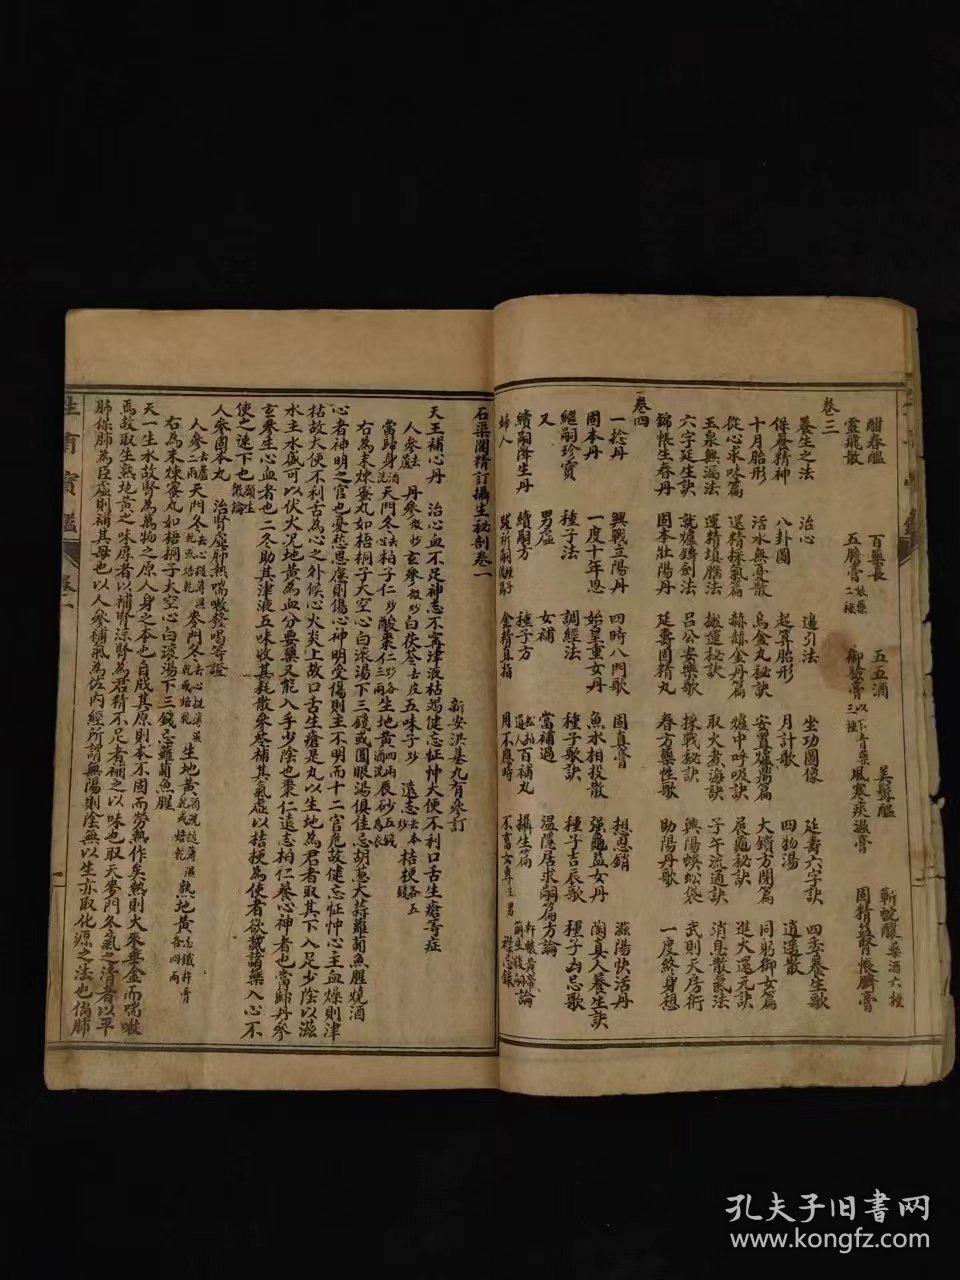 酣春醞 百藥長 五五酒 美髯醞 斬蛻釀 藥酒六種
靈飛散 五膽膏 以下青藥風寒痰滋膏 固精益腎悵臍膏
卷三
養生之法 治心 遠引法 坐功圖像 延壽六字訣 四季養生歌
保養精神 八卦圖 起算胎形 月計歌 四物湯 逍遙散
十月胎形 活水無毫散 烏金丸秘訣 安置爐鼎篇 大鎖方閉篇 同躬御女篇
從心求味篇 還精採氣篇 赫赫金丹篇 爐中呼吸訣 展龜秘訣 進火還元訣
玉泉無漏法 運精填腦法 搬運秘訣 取火煮海訣 子午流通訣 消息散氣法
六字延生訣 就爐鑄劍法 呂公安樂歌 採戰秘訣 興陽蜈蚣袋 武則天房術
錦帳生春丹 固本壯陽丹 延壽固精丸 春方藥性歌 助陽丹歌 一度終身想
卷四
一捻丹 興戰立陽丹 四時八門歌 固真膏 想思鎖 滋陽快活丹
固本丹 一度十年思 始皇童女丹 魚水相投散 强龜益女丹 陶真人養生訣
繼嗣珍寶 種子法 調經法 種子歌訣 種子吉辰歌 種子凶忌歌
又 男虛 女補 當補過 溫隱居求嗣篇方論
續嗣降生丹 續嗣方 種子方 百補丸 攝生篇
婦人 金精直指 月不應時 不畜女專生男 襍忘錄
石渠閣精訂攝生祕剖卷一
新安洪基九有參訂
天王補心丹 治心血不足神志不寗津液枯竭健忘怔忡大便不利口舌生瘡等症
人參去蘆 丹參微炒 玄參微炒 白茯苓去皮 五味子炒 遠志去本炒 桔梗各五錢
當歸身酒洗 天門冬去心 柏子仁炒 酸棗仁炒各二兩 生地黃四兩酒洗 辰砂五錢為衣
右為末煉蜜丸如梧桐子大空心白滾湯下三錢或圓眼湯俱佳忌胡荽大蒜蘿蔔魚腥燒酒
心者神明之官也憂愁思慮則傷心神明受傷則主不明而十二官危故健忘怔忡心主血燥則津
枯故大便不利舌為心之外候心火炎上故口舌生瘡是丸以生地為君者取其下入足少陰以滋
水主水盛可以伏火况地黃為血分要藥又能入手少陰也棗仁遠志柏仁養心神者也當歸丹參
玄參生心血者也二冬助其津液五味收其耗散參苓補其氣虛以桔梗為使者欲載諸藥入心不
使之速下也
人參固本丸 治腎虛肺熱喘嗽發喝等證
人參二兩去蘆 天門冬去心 麥門冬去心 生地黃 熟地黃忌鐵杵膏各四兩
右為末煉蜜丸如梧桐子大空心白滾湯下三錢忌蘿蔔魚腥
天一生水故腎為萬物之原人身之本也自戕其原則本不固而勞熱作矣熱則火來乗金而喘嗽
焉故取生熟地黃之味厚者以補腎涼腎為君精不足者補之以味也取天麥門冬氣之清者以平
肺保肺為臣虛則補其母也以人參補氣為佐内經所謂無陽則陰無以生亦取化源之法也倘肺
卷一
孔夫子旧書网
www.kongfz.com